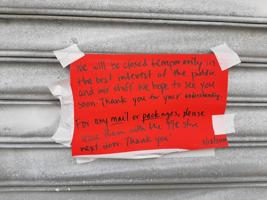 We will be closed temporarily in
the best interest of the public
and our staff. We hope to see you
soon. Thank you for your understanding.
For any mail or packages, please
leave them with the 99¢ store
next door. Thank you!